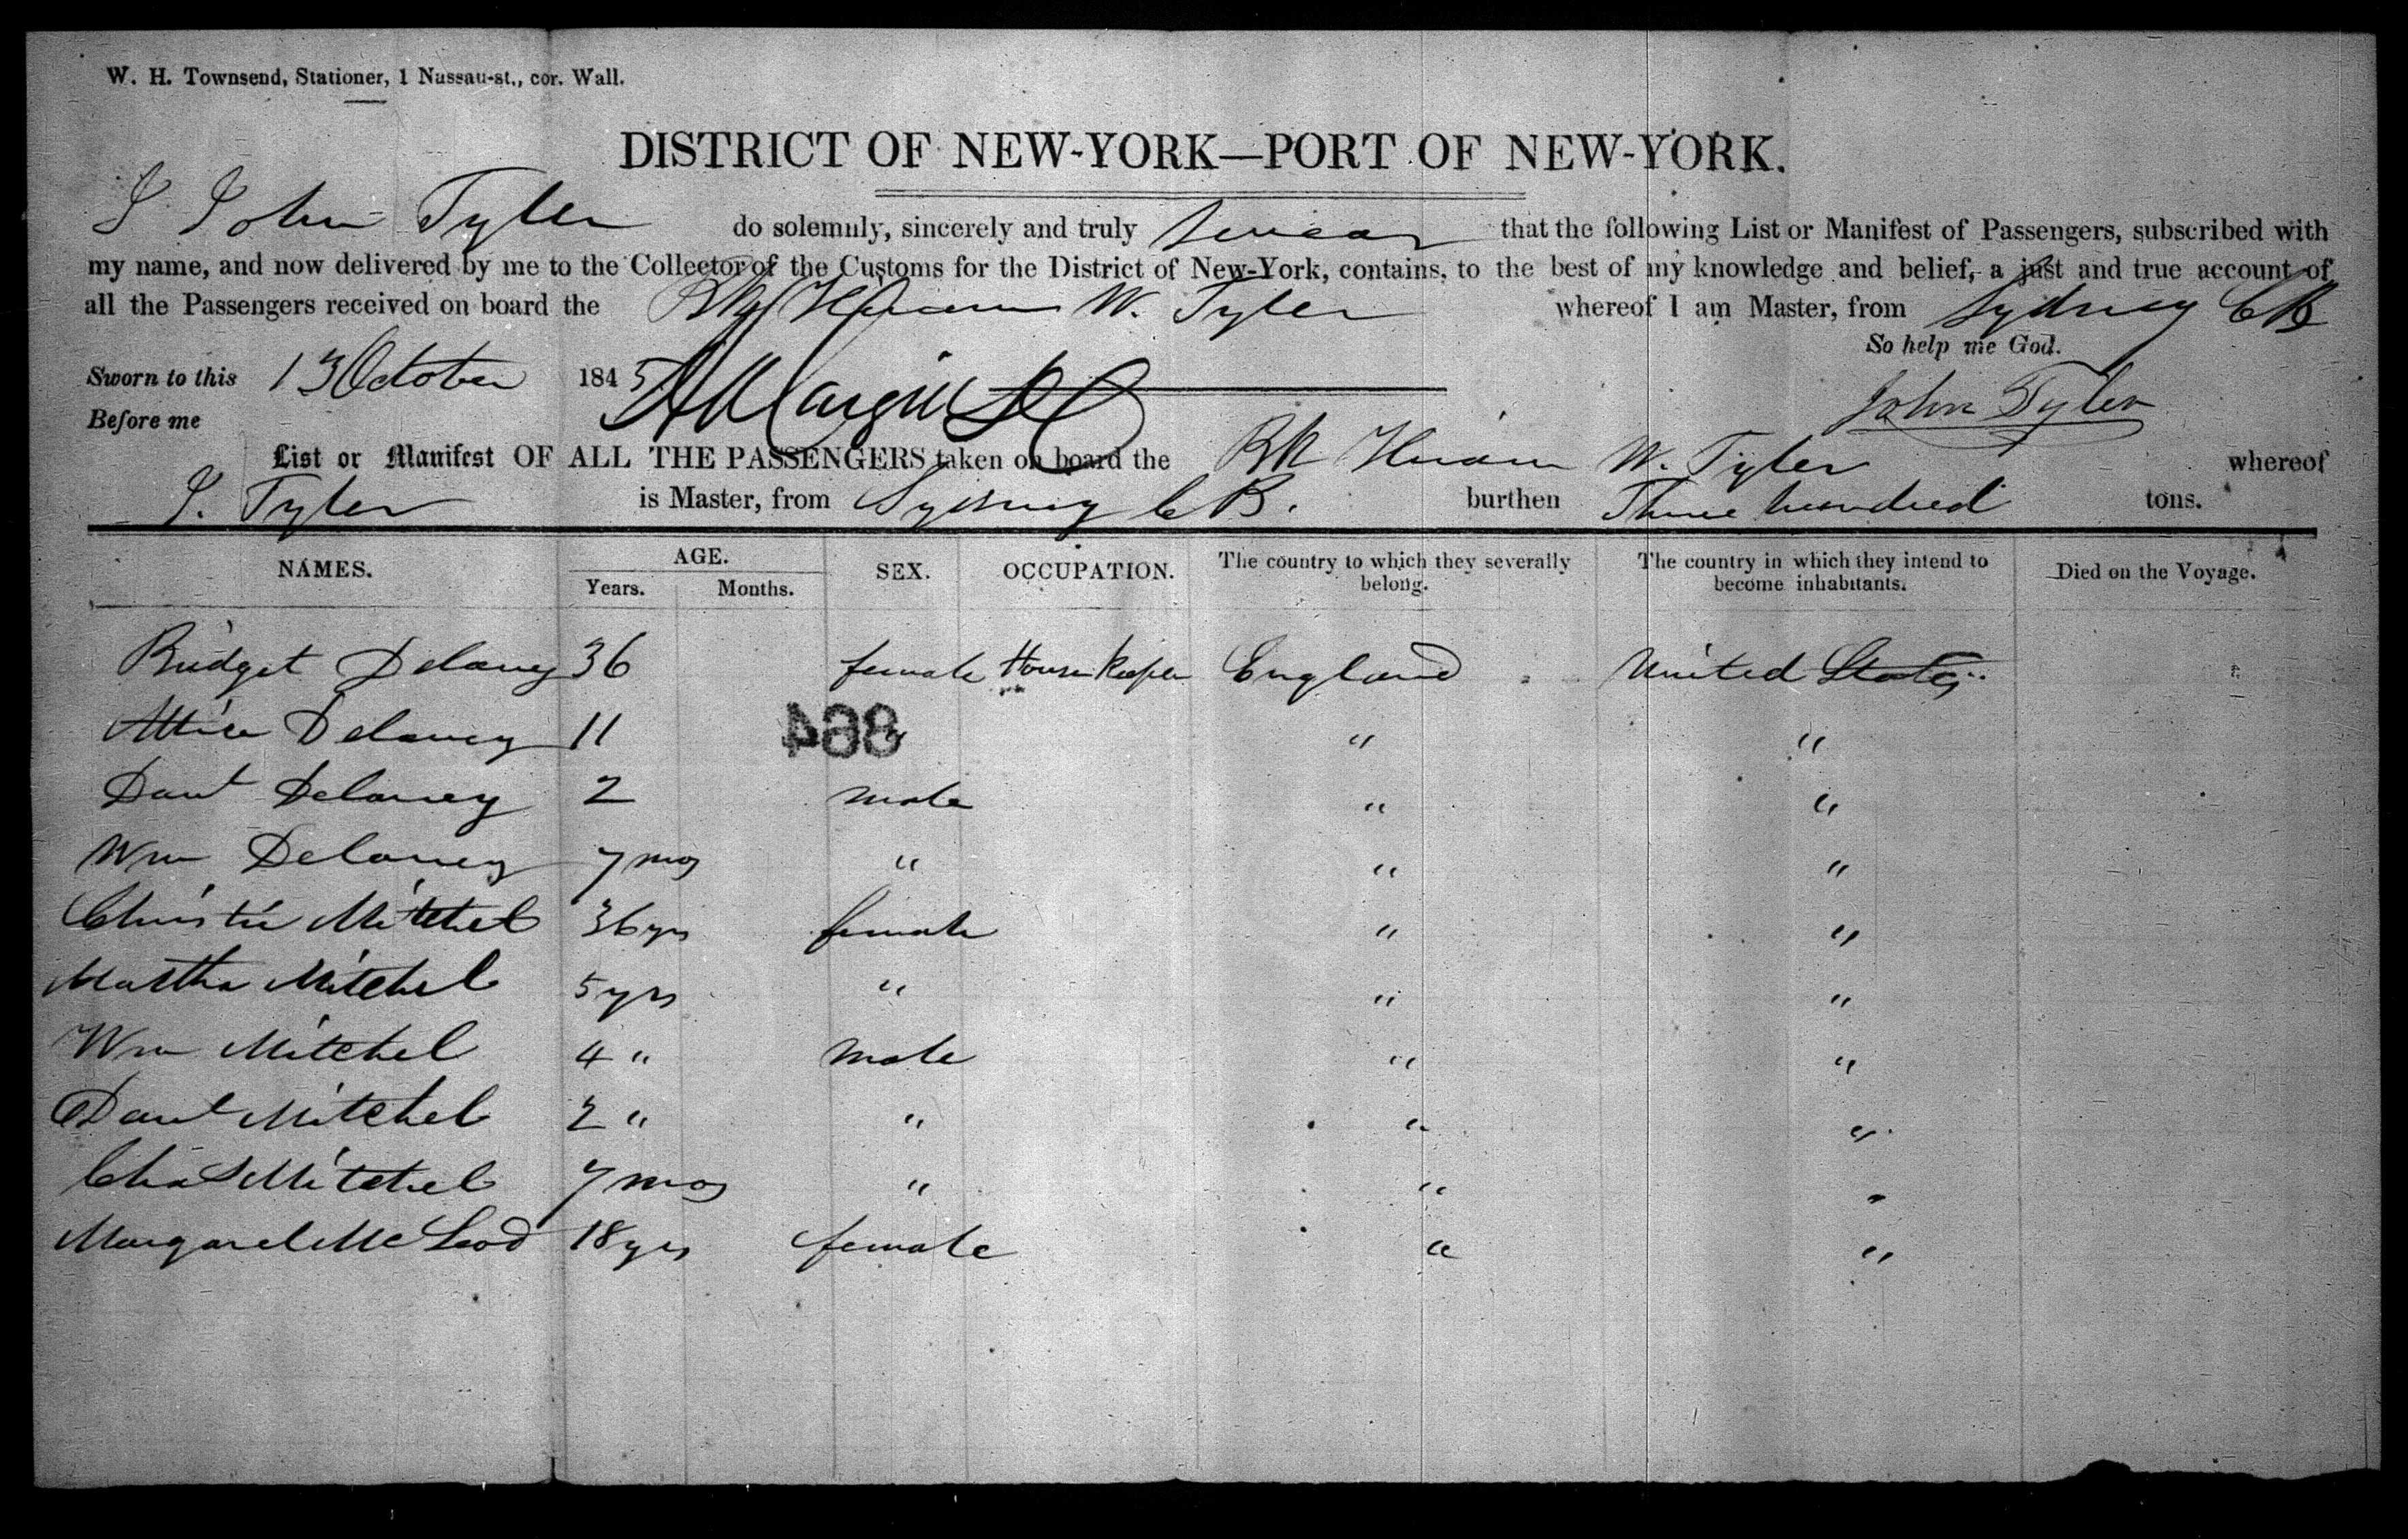 W. H. Townsend, Stationer, 1 Nassau-st., cor. Wall.
DISTRICT OF NEW-YORK—PORT OF NEW-YORK.
I John Tyler do solemnly, sincerely and truly swear that the following List or Manifest of Passengers, subscribed with
my name, and now delivered by me to the Collector of the Customs for the District of New-York, contains, to the best of my knowledge and belief, a just and true account of
all the Passengers received on board the W. Tyler whereof I am Master, from Sydney CB
So help me God.
Sworn to this 13 October 1845
John Tyler
Before me
List or Manifest OF ALL THE PASSENGERS taken on board the Hiram W. Tyler whereof
J. Tyler is Master, from Sydney C B. burthen Three hundred tons.
NAMES. AGE. SEX. OCCUPATION. The country to which they severally belong. The country in which they intend to become inhabitants. Died on the Voyage.
Years. Months.
Bridget Delaney 36 female House Keeper England United States
Delaney 11 " " "
864
Danl Delaney 2 male " "
Wm Delaney 7 mos " " "
Christie Mitchel 36 yrs female " "
Martha Mitchel 5 yrs " " "
Wm Mitchel 4 " male " "
Danl Mitchel 2 " " " "
Chas Mitchel 7 mos " " "
Margaret McLeod 18 yrs female " "